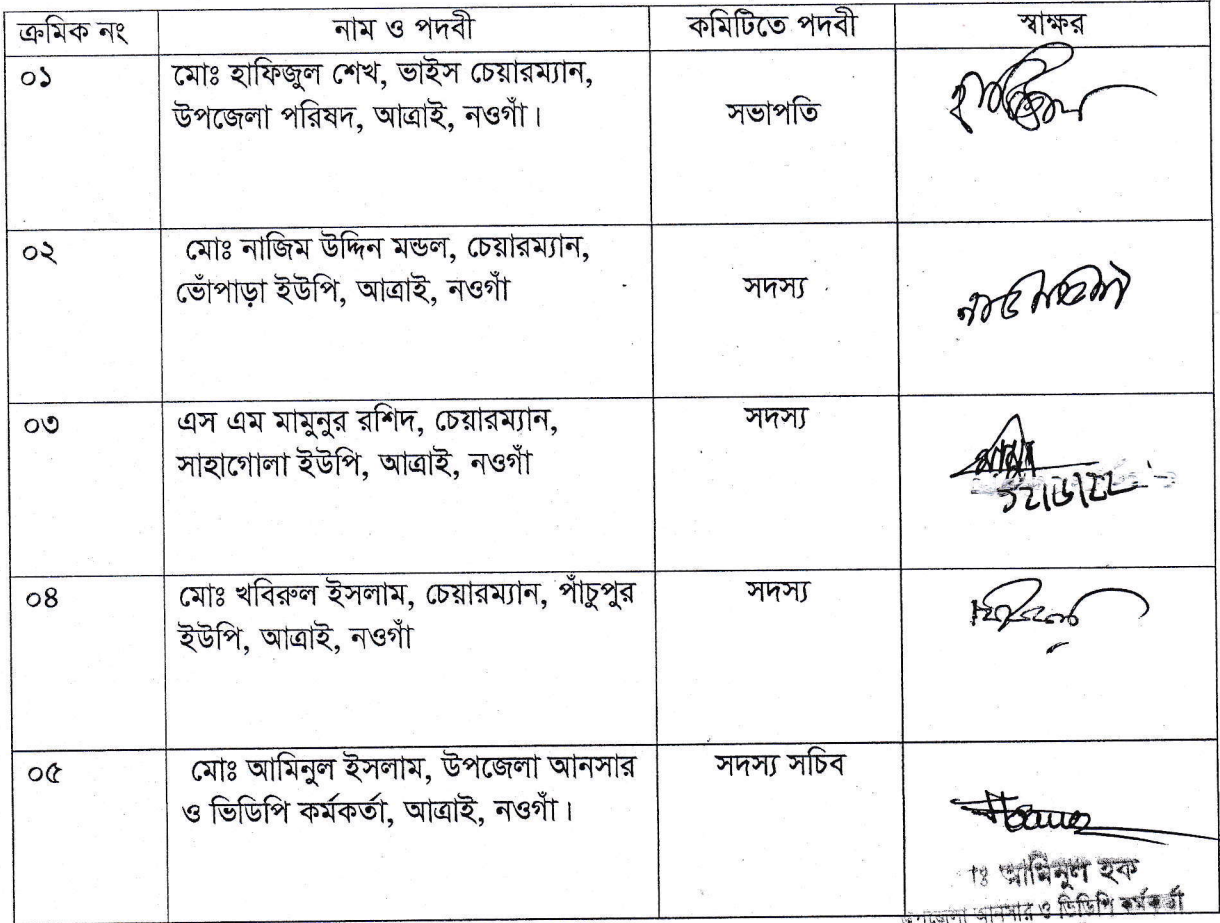 ক্রমিক নং নাম ও পদবী কমিটিতে পদবী স্বাক্ষর
০১ মোঃ হাফিজুল শেখ, ভাইস চেয়ারম্যান,
উপজেলা পরিষদ, আত্রাই, নওগাঁ। সভাপতি
০২ মোঃ নাজিম উদ্দিন মন্ডল, চেয়ারম্যান,
ভোঁপাড়া ইউপি, আত্রাই, নওগাঁ সদস্য
০৩ এস এম মামুনুর রশিদ, চেয়ারম্যান, সদস্য
সাহাগোলা ইউপি, আত্রাই, নওগাঁ
০৪ মোঃ খবিরুল ইসলাম, চেয়ারম্যান, পাঁচুপুর সদস্য
ইউপি, আত্রাই, নওগাঁ
০৫ মোঃ আমিনুল ইসলাম, উপজেলা আনসার সদস্য সচিব
ও ভিডিপি কর্মকর্তা, আত্রাই, নওগাঁ।
আমিনুল হক
উপজেলা আনসার ও ভিডিপি কর্মকর্তা